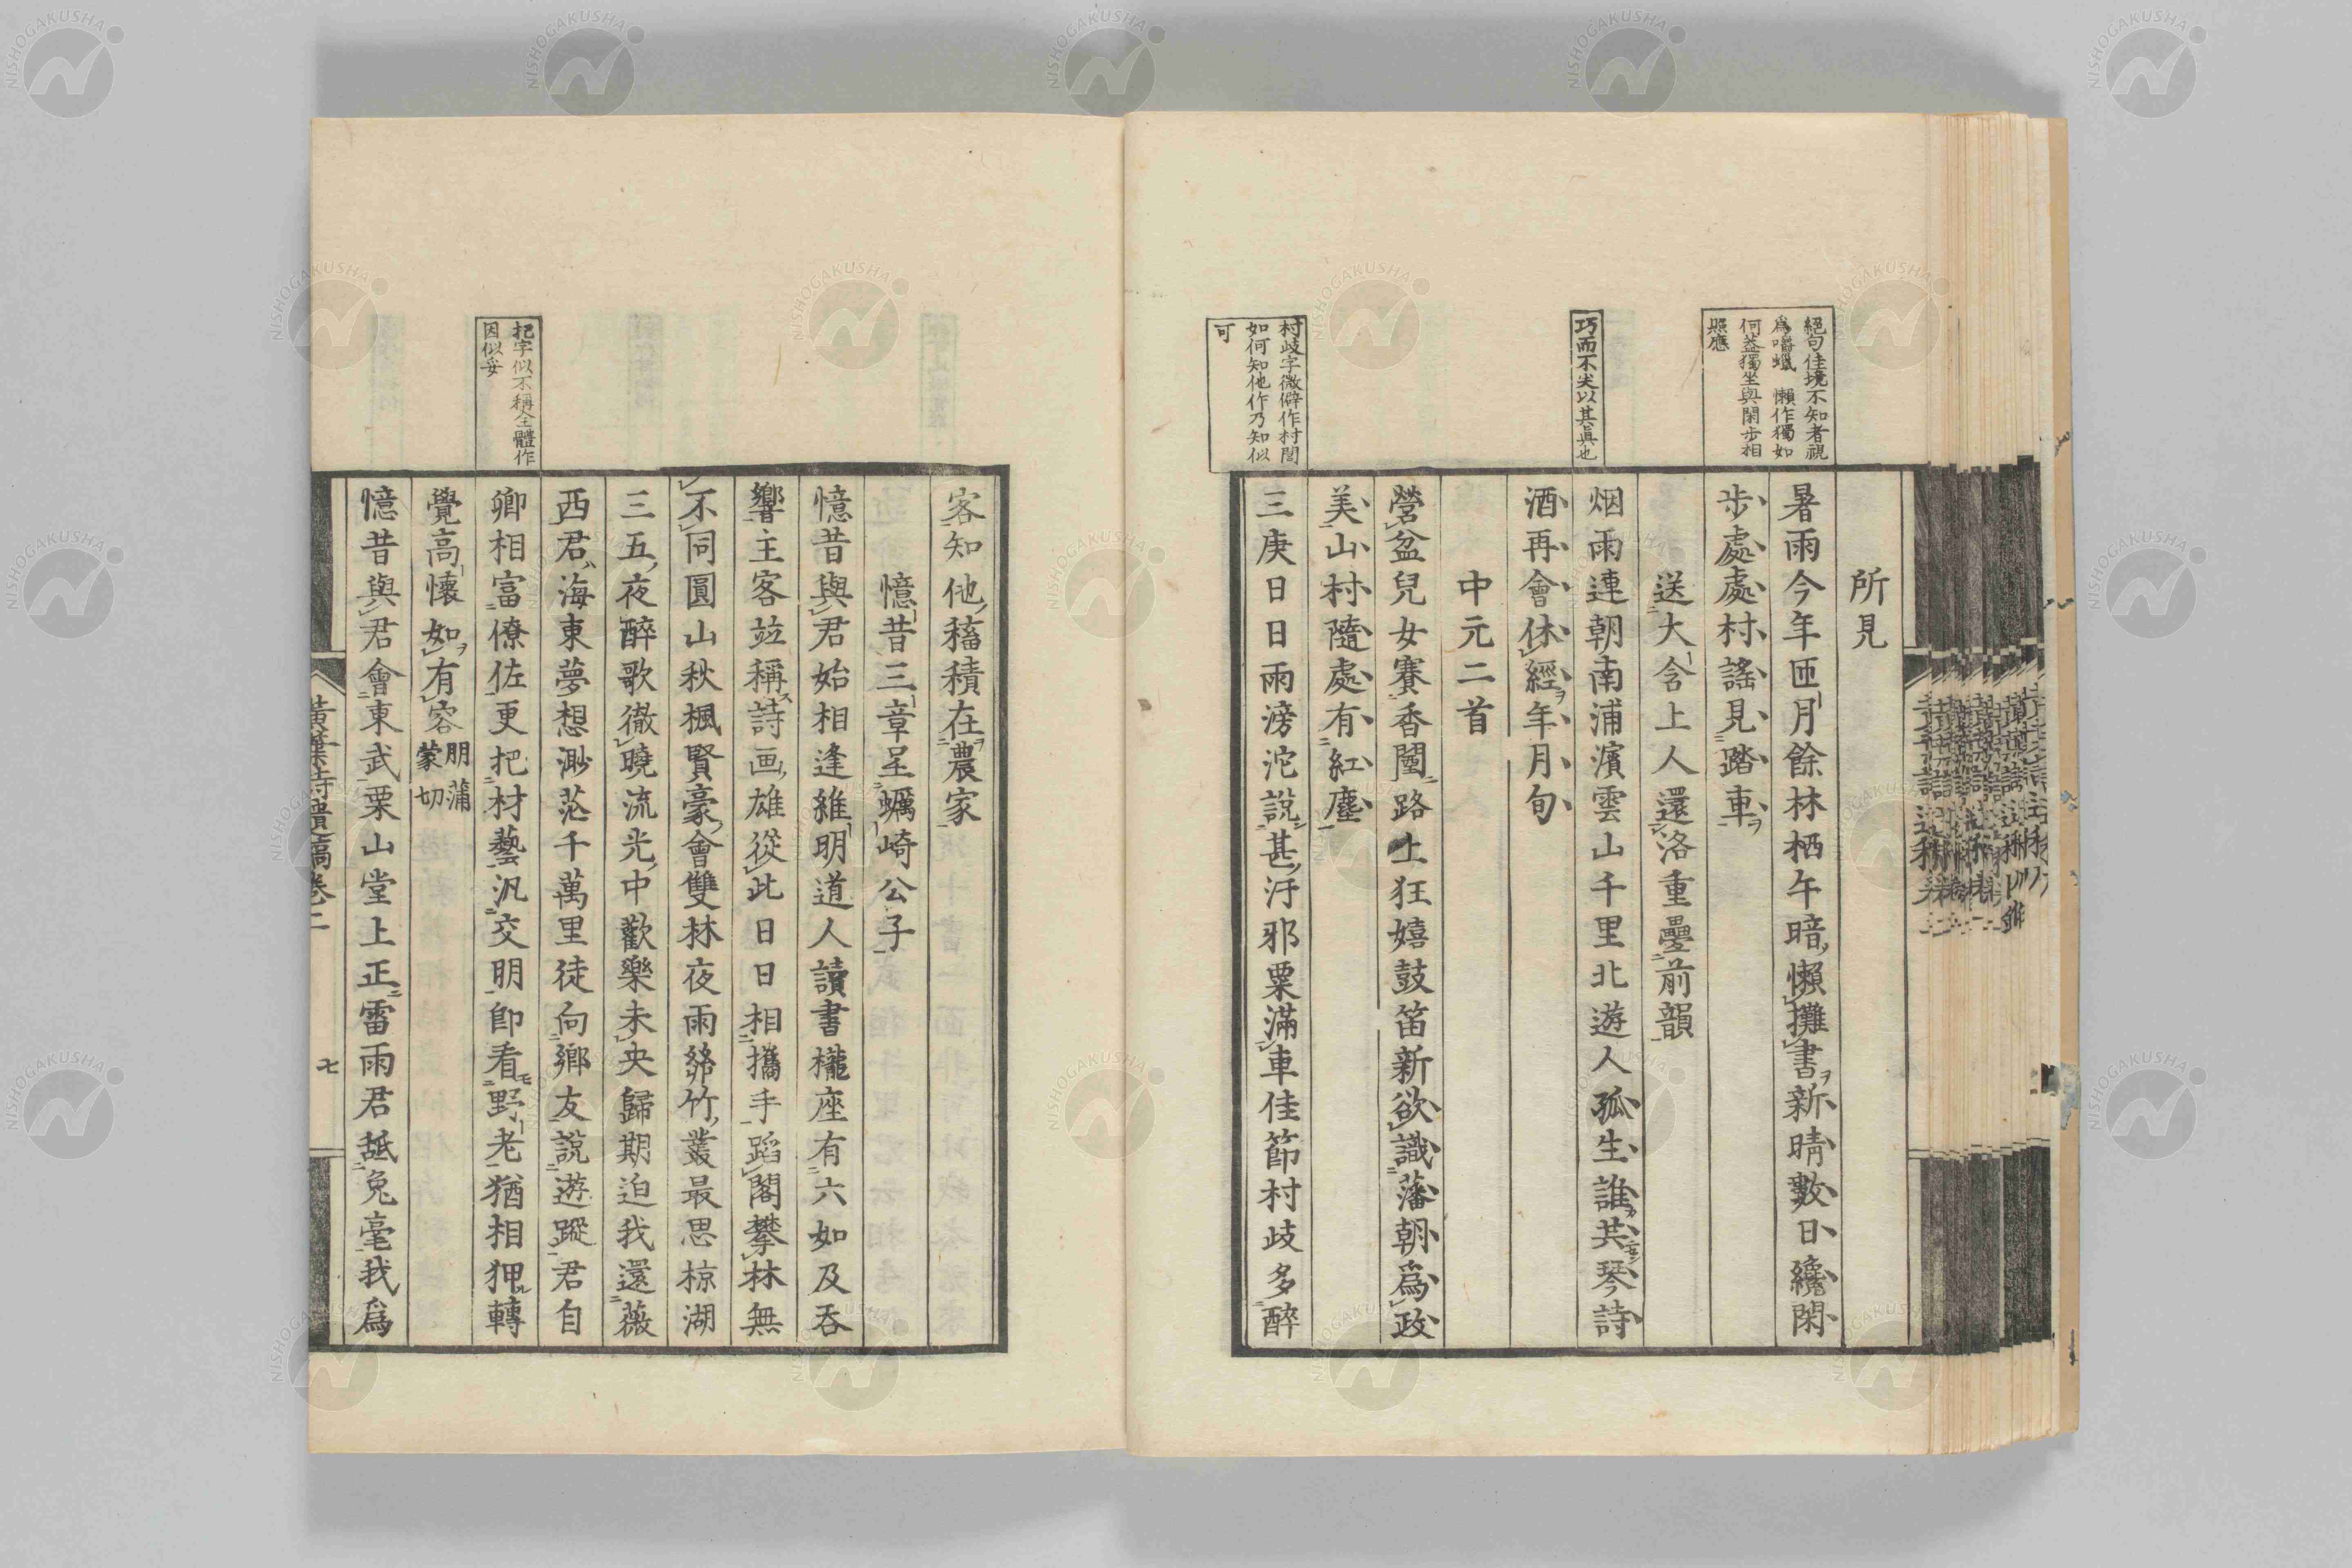 所見
暑雨今年匝月餘林栖午暗懶攤書新晴數日纔閑
步處處村謠見踏車
送大含上人還洛重疊前韻
烟雨連朝南浦濱雲山千里北遊人孤生誰共琴詩
酒再會休經年月旬
中元二首
營盆兒女賽香閩路上狂嬉鼓笛新欲識藩朝爲政
美山村隨處有紅塵
三庚日日雨滂沱說甚汙邪粟滿車佳節村歧多醉
絕句佳境不知者視
爲嚼蠟 懶作獨如
何蓋獨坐與閑步相
照應
巧而不尖以其眞也
村歧字微僻作村閭
如何知他作乃知似
可
客知他穡積在農家
憶昔三章呈蠣崎公子
憶昔與君始相逢維明道人讀書櫳座有六如及吞
響主客竝稱詩画雄從此日日相攜手蹈閣攀林無
不同圓山秋楓賢豪會雙林夜雨絲竹叢最思椋湖
三五夜醉歌徹曉流光中歡樂未央歸期迫我還薇
西君海東夢想渺茫千萬里徒向鄉友說遊蹤君自
卿相富僚佐更把材藝汎交明卽看野老猶相狎轉
覺高懷如有容 朋蒲蒙切
憶昔與君會東武栗山堂上正雷雨君舐兔毫我爲
把字似不稱全體作
因似妥
黃葉詩遺稿卷二
七
NISHOGAKUSHA